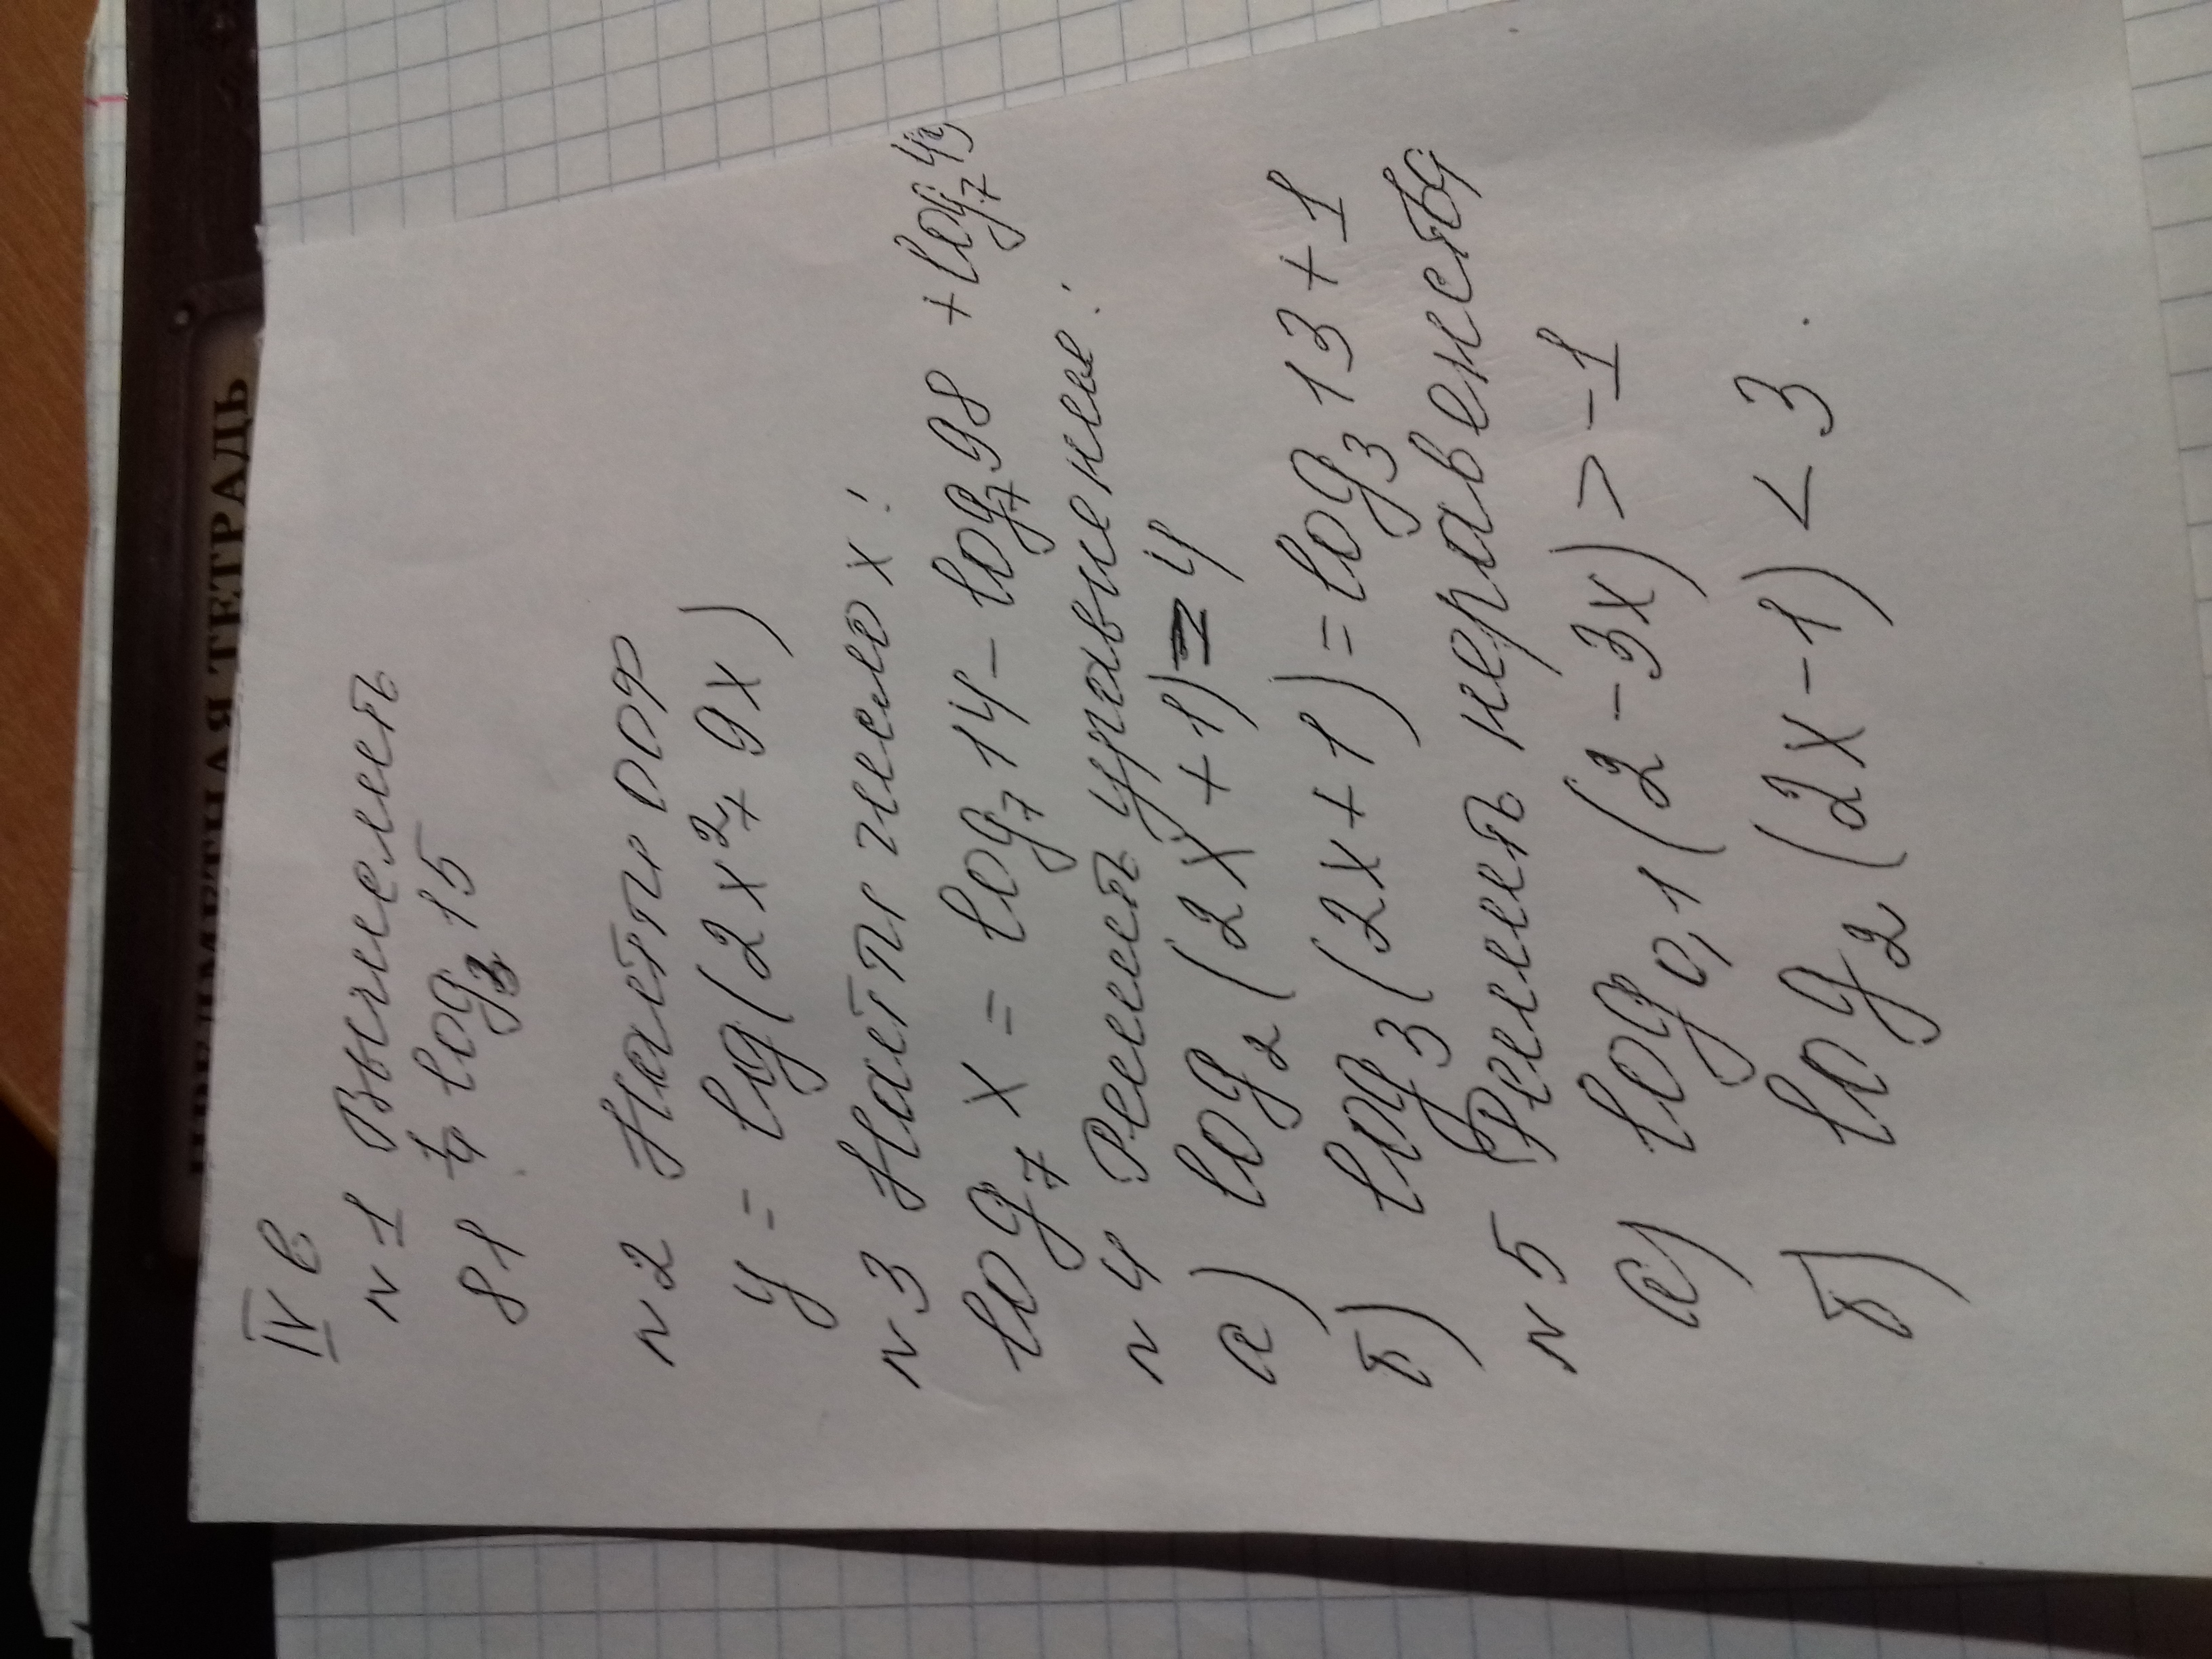 ПРЕДМЕТНАЯ ТЕТРАДЬ
IV в
№1 Вычислить
81^{1/4 log₃15}
№2 Найти ООФ
y = lg(2x² + 9x)
№3 Найти число x:
log₇ x = log₇ 14 - log₇ 98 + log₇
№4 Решить уравнение:
а) log₂(2x + 1) = 4
б) log₃(2x + 1) = log₃ 13 + 1
№5 Решить неравенства
а) log₀,₁(2 - 3x) > -1
б) log₂(2x - 1) < 3.